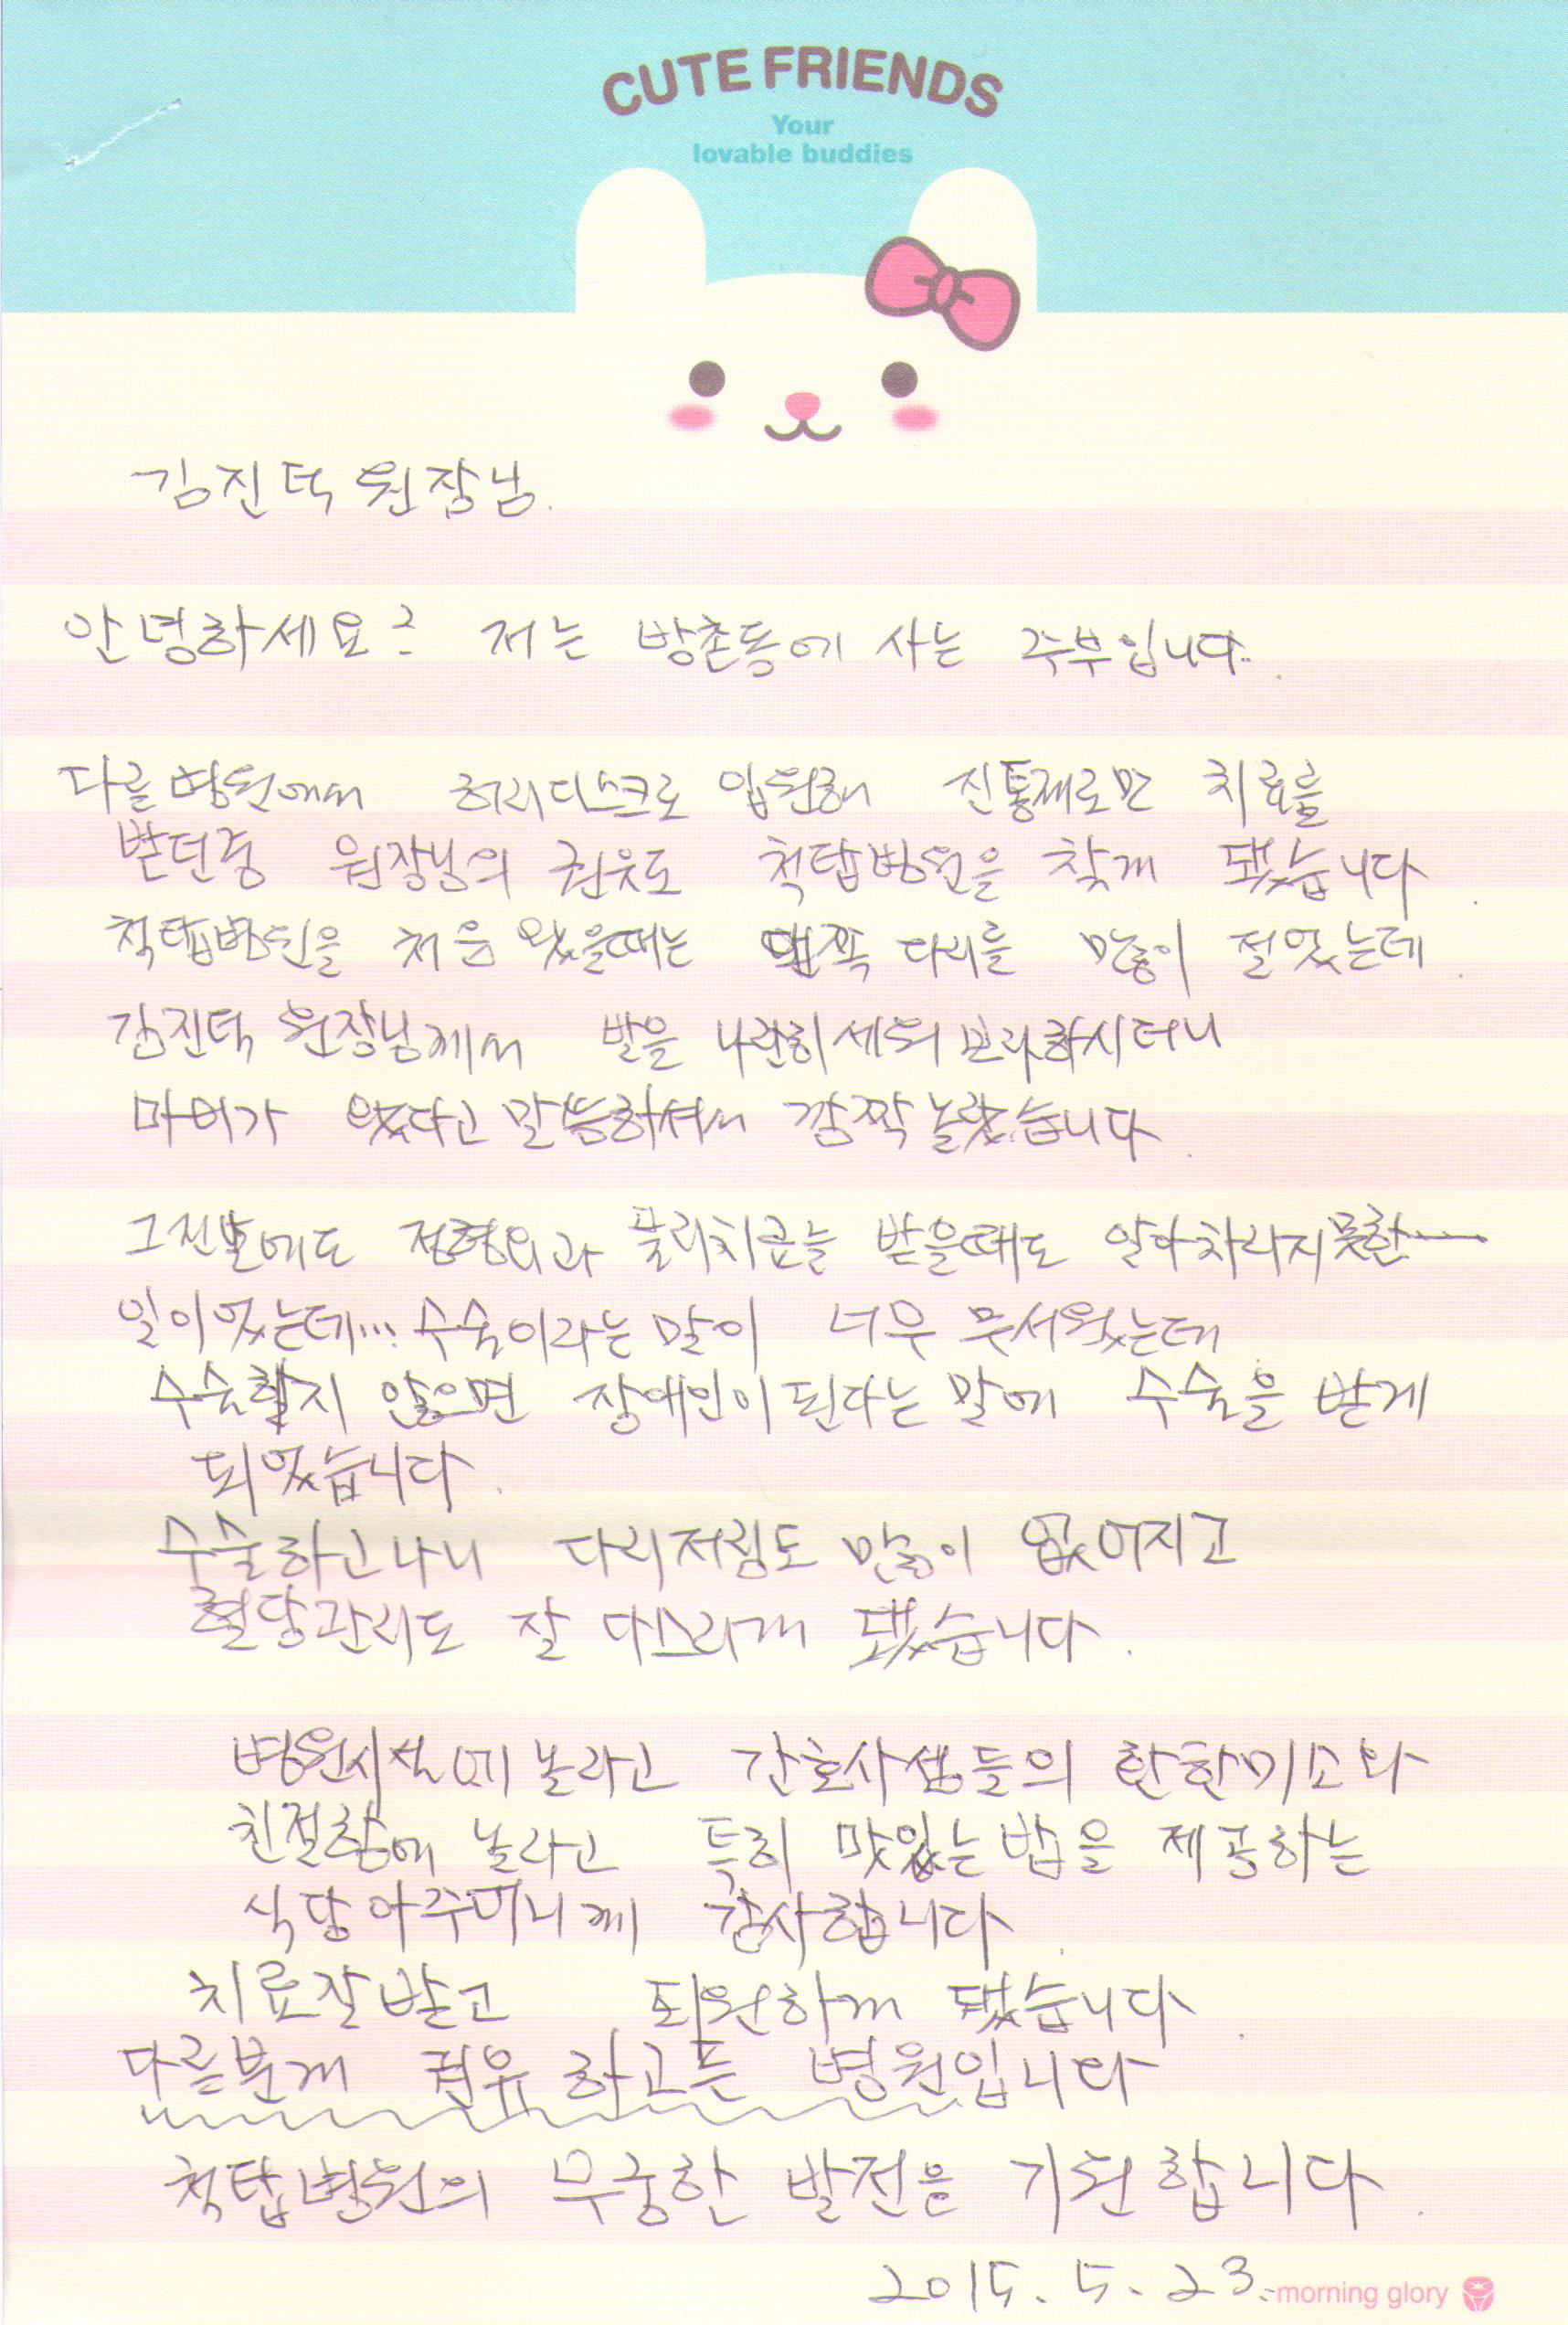 CUTE FRIENDS
Your
lovable buddies
김진덕 원장님.
안녕하세요? 저는 방촌동에 사는 주부입니다.
다른병원에서 허리디스크로 입원해 진통제로만 치료를
받던중 원장님의 권유로 척탑병원을 찾게 됐습니다.
척탑병원을 처음 왔을때는 왼쪽 다리를 많이 절었는데.
김진덕 원장님께서 발을 나란히 세워 보라하시더니
마비가 왔다고 말씀하셔서 깜짝 놀랐습니다.
그전에도 정형외과 물리치료를 받을때도 알아차리지못한……
일이었는데… 수술이라는 말이 너무 무서웠는데
수술하지 않으면 장애인이 된다는 말에 수술을 받게
되었습니다.
수술하고나니 다리저림도 많이 없어지고
혈당관리도 잘 다스리게 됐습니다.
병원시설에 놀라고 간호사샘들의 환한미소와
친절함에 놀라고 특히 맛있는 밥을 제공하는
식당아주머니께 감사합니다.
치료잘받고 퇴원하게 됐습니다.
다른분게 권유 하고픈 병원입니다
척탑병원의 무궁한 발전을 기원합니다.
2015. 5. 23.
morning glory